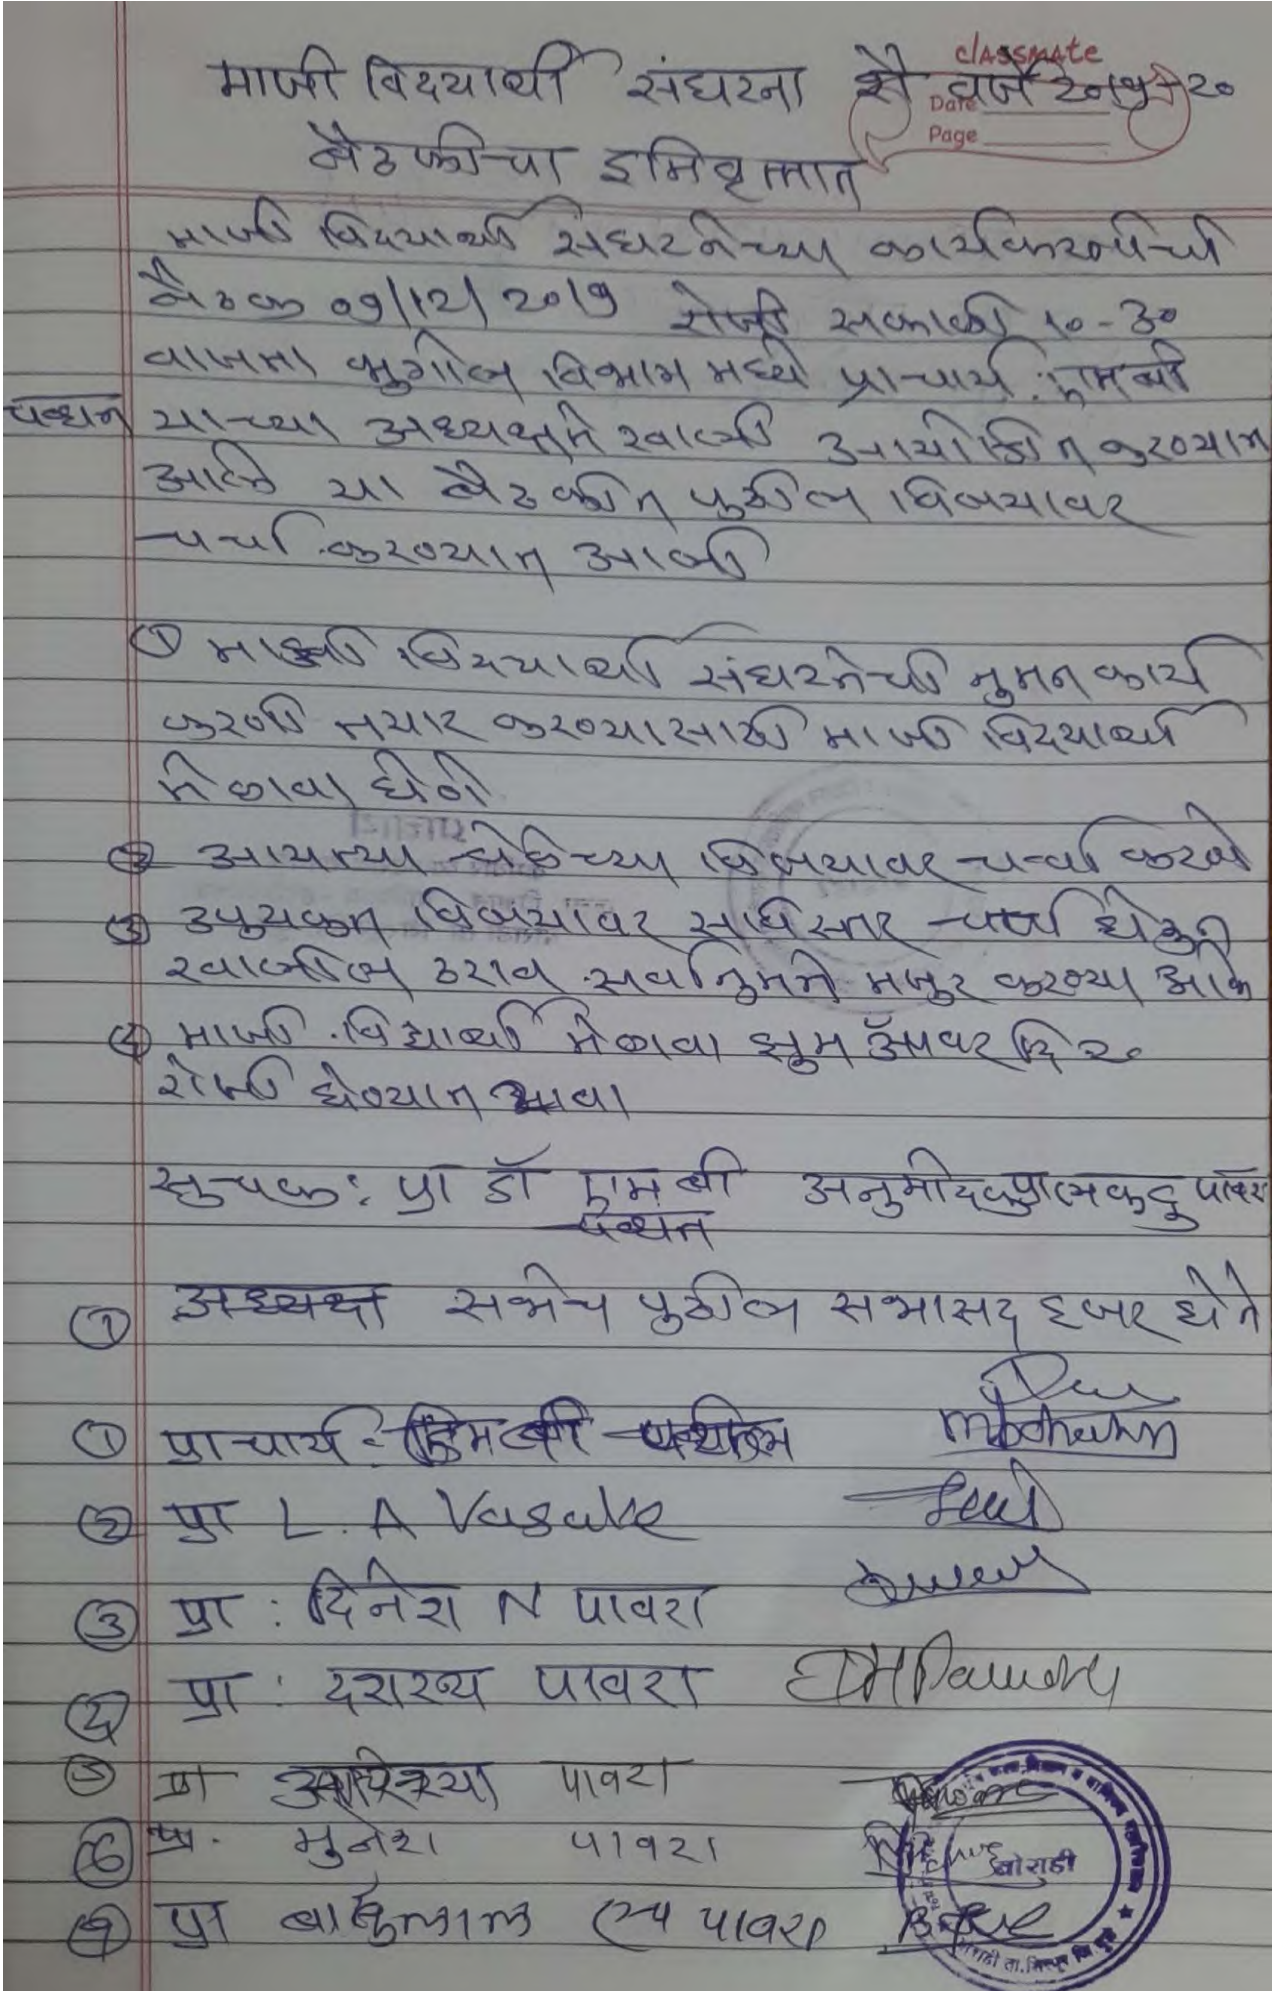 classmate
माजी विदयार्थी संघटना शै वर्ज २०१९-२०
Date
Page
बैठकीचा इतिवृत्तात
माजी विदयार्थी संघटनेच्या कार्यकरणीची
बैठक 09/12/2019 रोजी सकाळी १०-३०
वाजता भुगोल विभाग मध्ये प्राचार्य: एम बी
चव्हान याच्या अध्यक्षते खाली आयोजित करण्यात
आले या बैठकीत पुढील विषयावर
चर्चा करण्यात आली
① माजी विदयार्थी संघटनेची नुतन कार्य
करणी तयार करण्यासाठी माजी विदयार्थी
मेळावा घेणे
② आयत्या वेळेच्या विषयावर चर्चा करणे
③ उपुयक्त विषयावर सविस्तर चर्चा घेऊन
खालील ठराव सर्वानुमते मजुर करण्या आले
④ माजी विद्यार्थी मेळावा झुम ॲपवर दि २०
रोजी घेण्यात यावा
सुचक: प्रा डॉ एम बी अनुमोदक प्रा पावरा
चव्हान
① अध्यक्ष सभेच पुढील सभासद हजर होते
① प्राचार्य: एम बी चव्हान
② प्रा L. A Vasave
③ प्रा: दिनेश N पावरा
④ प्रा: दशरथ पावरा DHPawara
⑤ प्रा पावरा
⑥ प्रा. मुनेश पावरा
⑦ प्रा पावरा
बोराडी